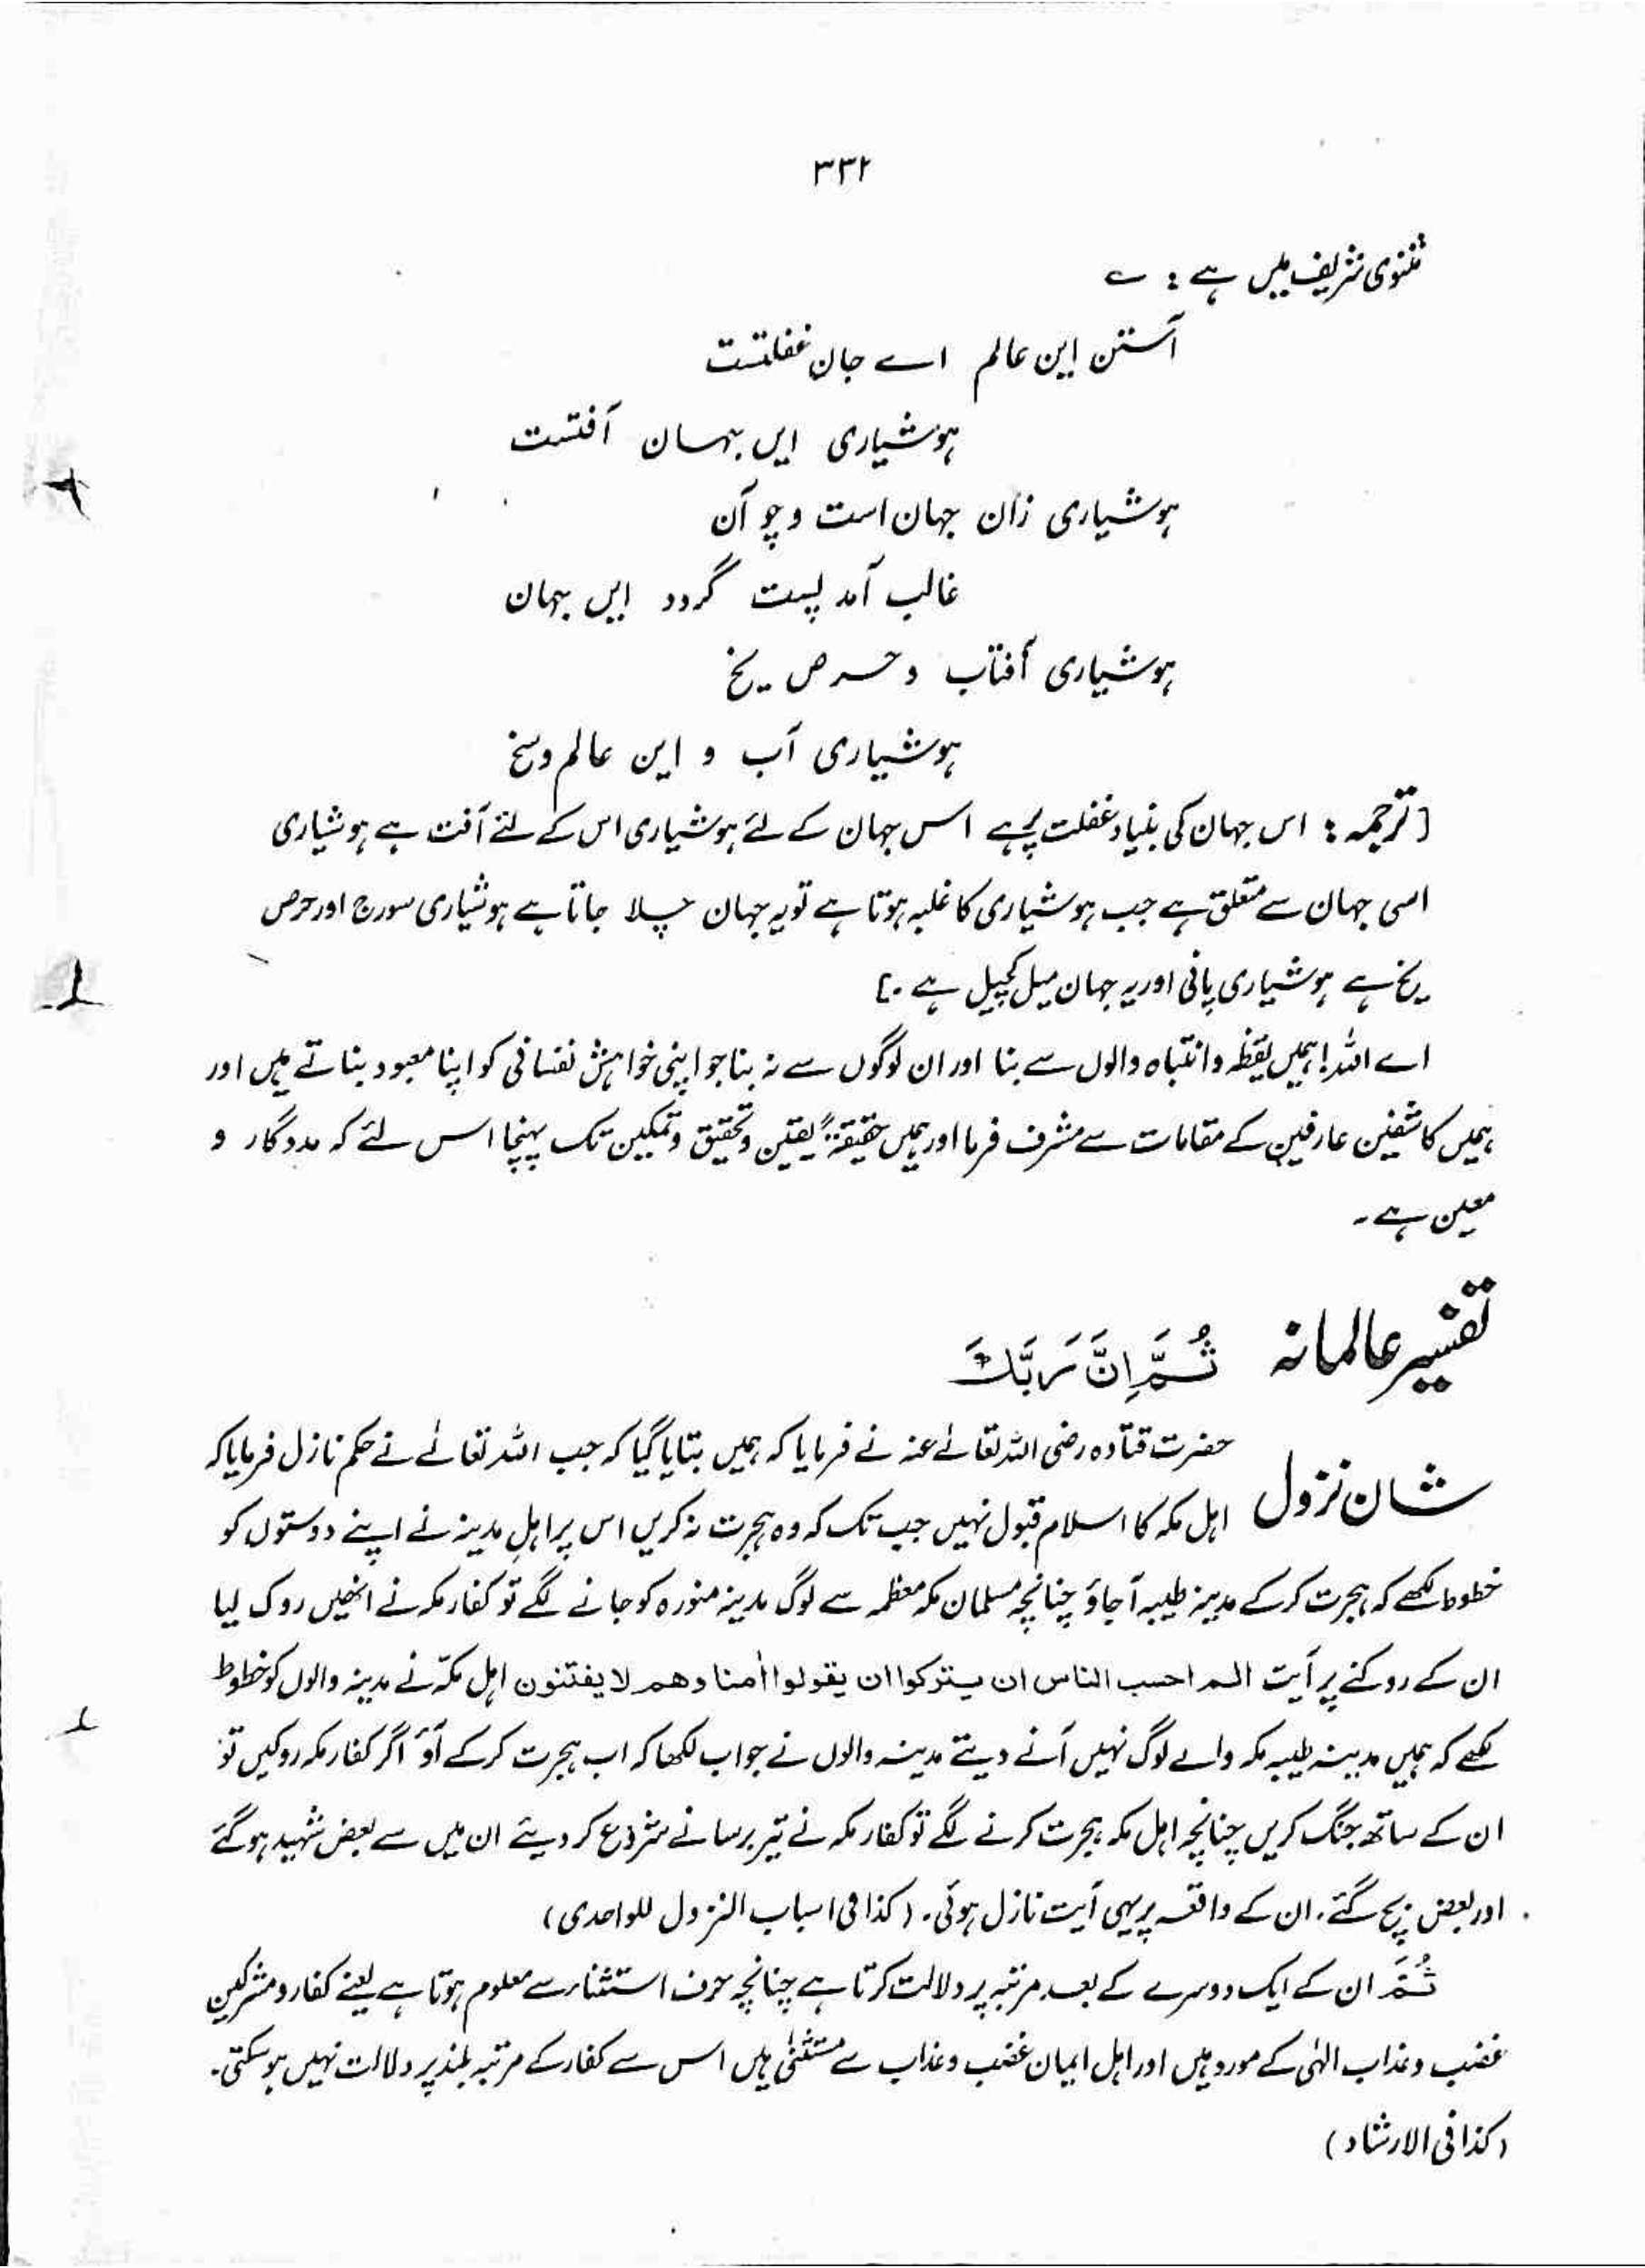 ۳۳۲
مثنوی شریف میں ہے : ؎
آستن این عالم اے جان غفلتست
ہوشیاری ایں جہان آفتست
ہوشیاری زان جہان است و چو آن
غالب آمد پست گردد ایں جہان
ہوشیاری آفتاب و حرص یخ
ہوشیاری آب و این عالم وسخ
[ ترجمہ : اس جہان کی بنیاد غفلت پر ہے اس جہان کے لئے ہوشیاری اس کے لئے آفت ہے ہوشیاری
اسی جہان سے متعلق ہے جب ہوشیاری کا غلبہ ہوتا ہے تو یہ جہان چلا جاتا ہے ہوشیاری سورج اور حرص
یخ ہے ہوشیاری پانی اور یہ جہان میل کچیل ہے ۔ ]
اے اللہ! ہمیں یقظہ و انتباہ والوں سے بنا اور ان لوگوں سے نہ بنا جو اپنی خواہش نفسانی کو اپنا معبود بناتے ہیں اور
ہمیں کاشفین عارفین کے مقامات سے مشرف فرما اور ہمیں حقیقۃً یقین و تحقیق و تمکین تک پہنچا اس لئے کہ مددگار و
معین ہے ۔
تفسیر عالمانہ ثُمَّ اِنَّ رَبَّكَ
شان نزول حضرت قتادہ رضی اللہ تعالےٰ عنہ نے فرمایا کہ ہمیں بتایا گیا کہ جب اللہ تعالےٰ نے حکم نازل فرمایا کہ
اہل مکہ کا اسلام قبول نہیں جب تک کہ وہ ہجرت نہ کریں اس پر اہلِ مدینہ نے اپنے دوستوں کو
خطوط لکھے کہ ہجرت کرکے مدینہ طیبہ آجاؤ چنانچہ مسلمان مکہ معظمہ سے لوگ مدینہ منورہ کو جانے لگے تو کفار مکہ نے انھیں روک لیا
ان کے روکنے پر آیت الم احسب الناس ان یترکوا ان یقولوا اٰمنا وھم لا یفتنون اہل مکہّ نے مدینہ والوں کو خطوط
لکھے کہ ہمیں مدینہ طیبہ مکہ والے لوگ نہیں آنے دیتے مدینہ والوں نے جواب لکھا کہ اب ہجرت کرکے آؤ اگر کفار مکہ روکیں تو
ان کے ساتھ جنگ کریں چنانچہ اہل مکہ ہجرت کرنے لگے تو کفار مکہ نے تیر برسانے شروع کر دیئے ان میں سے بعض شہید ہوگئے
اور بعض بچ گئے ، ان کے واقعہ پر یہی آیت نازل ہوئی ۔ (کذا فی اسباب النزول للواحدی)
ثُمَّ ان کے ایک دوسرے کے بعد مرتبہ پر دلالت کرتا ہے چنانچہ حرف استثناء سے معلوم ہوتا ہے یعنے کفار و مشرکین
غضب و عذاب الٰہی کے مورد ہیں اور اہل ایمان غضب و عذاب سے مستثنٰی ہیں اس سے کفار کے مرتبہ بلند پر دلالت نہیں ہوسکتی ۔
(کذا فی الارشاد)